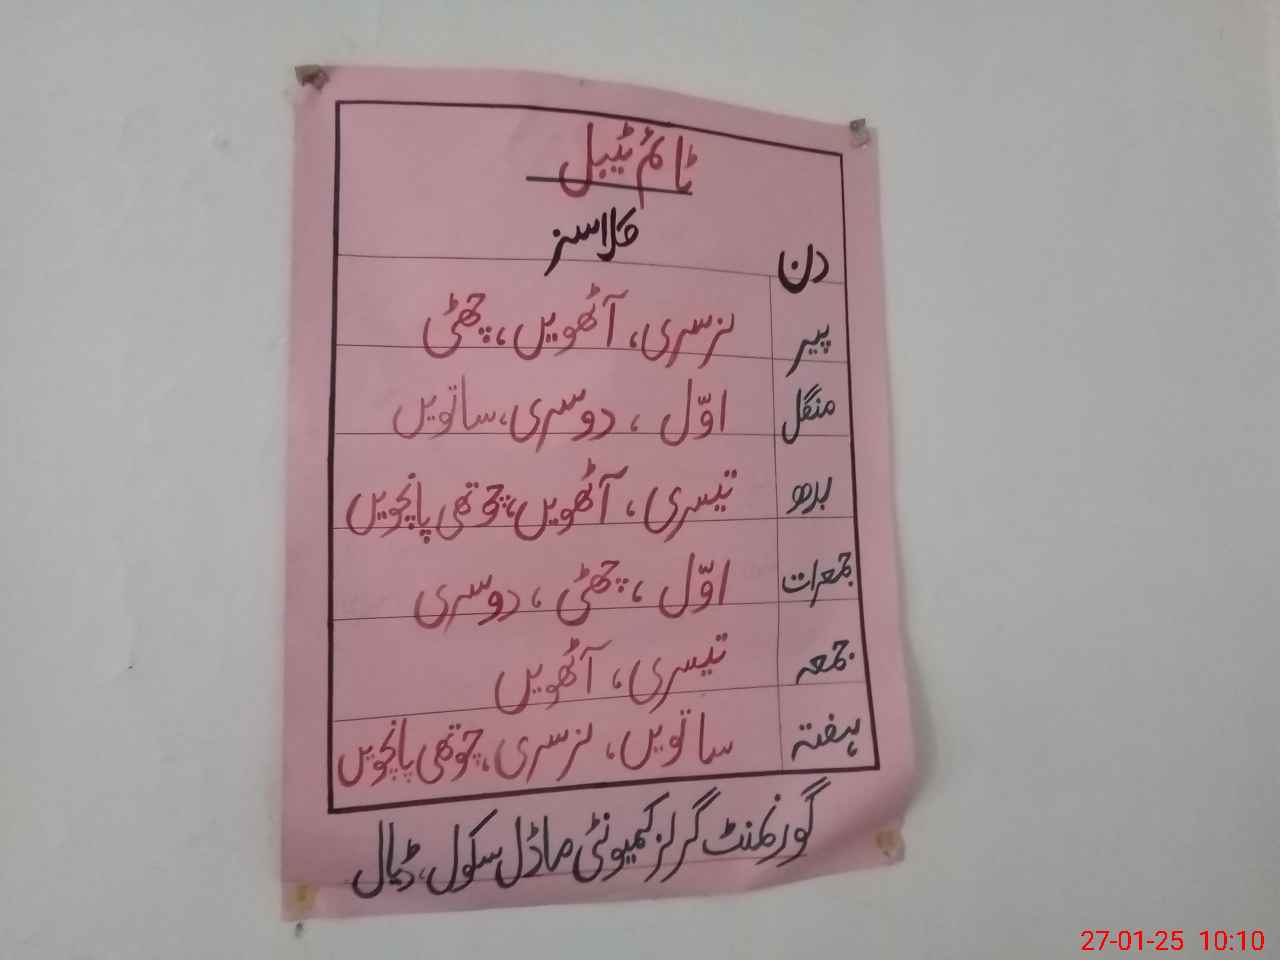 ٹائم ٹیبل
دن کلاسز
پیر نرسری، آٹھویں، چھٹی
منگل اوّل ، دوسری، ساتویں
بدھ تیسری، آٹھویں، چوتھی پانچویں
جمعرات اوّل ، چھٹی ، دوسری
جمعہ تیسری، آٹھویں
ہفتہ ساتویں، نرسری، چوتھی پانچویں
گورنمنٹ گرلز کمیونٹی ماڈل سکول، ڈیال
27-01-25 10:10